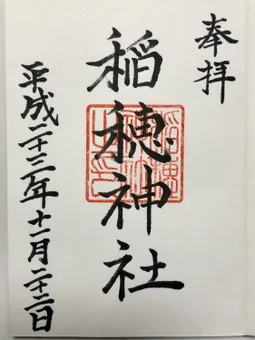 奉拝
稲穂神社
平成二十三年十一月二十二日